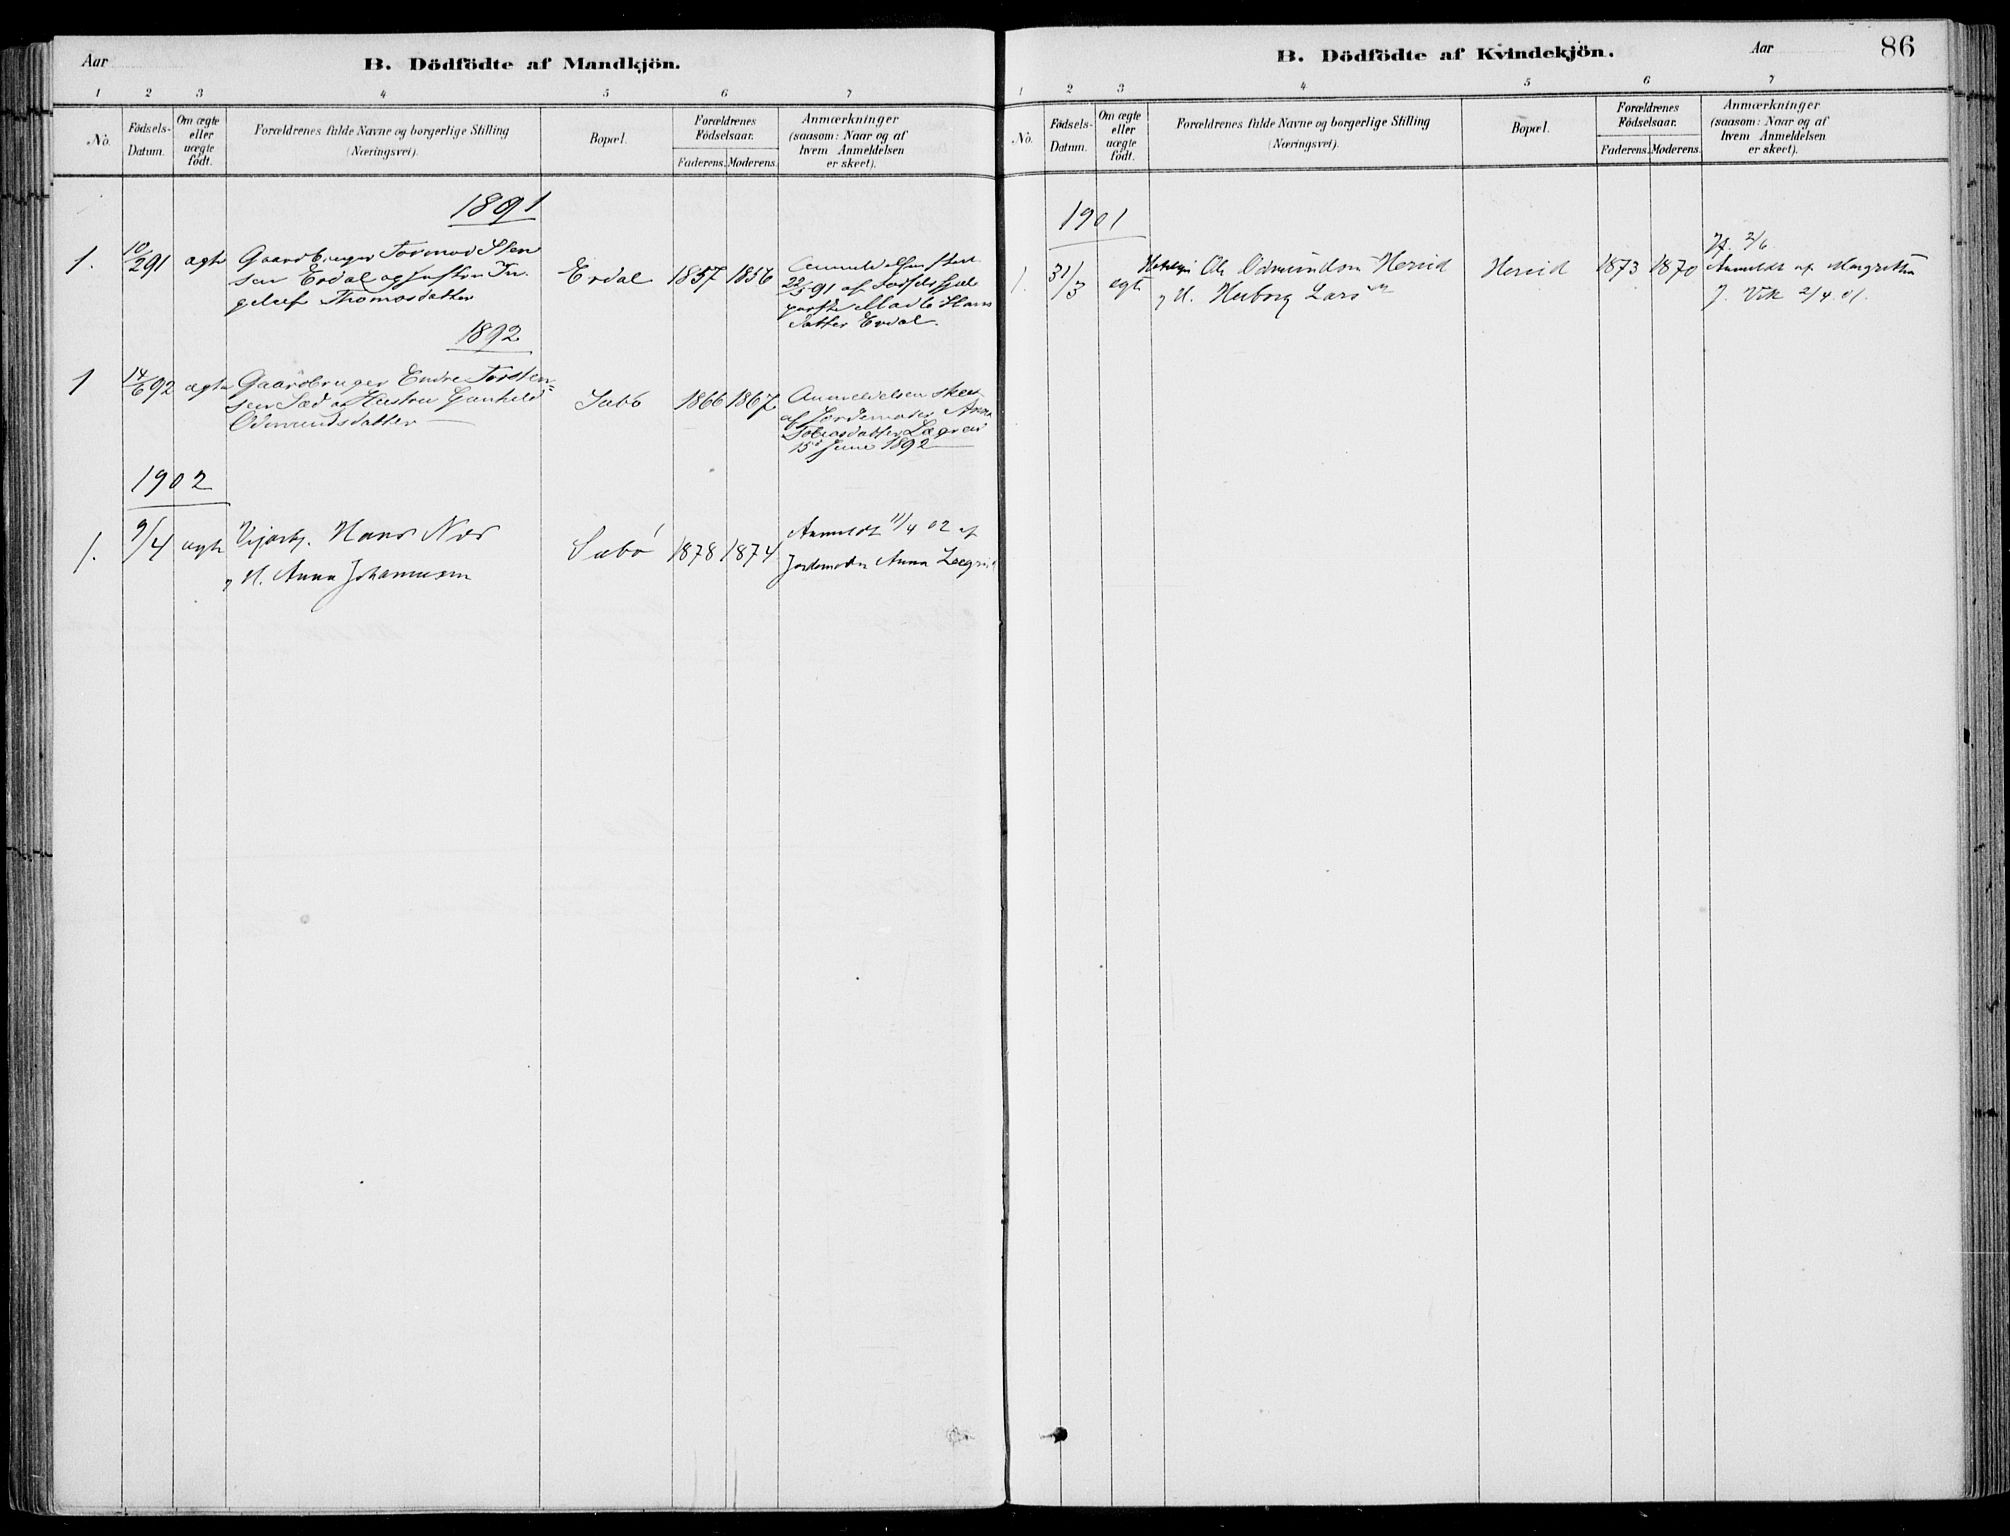 Aar
B. Dödfödte af Mandkjön.
1 2 3 4 5 6 7
No.
Födsels-
Datum.
Om ægte
eller
uægte
födt.
Forældrenes fulde Navne og borgerlige Stilling
(Næringsvei).
Bopæl.
Forældrenes
Födselsaar.
Faderens. Moderens.
Anmærkninger
(saasom: Naar og af
hvem Anmeldelsen
er skeet).
1891
1. 10/2 91 ægte
Gaardbruger Tormod Sten
sen Erdal og Hustru In-
geleif Thomasdatter
Erdal 1857 1856
Anmeldelsen skeet
22/5 91 af
Madla Hans
datter Erdal.
1892
1 14/6 92 ægte
Gaardbruger Endre Torsten-
sen Sæd og Hustru Gunhild
Odmundsdatter
Sæbø 1866 1867
Anmeldelsen skeet
af Jordemoder Anna
Tobiasdatter Lægreid
15 Juni 1892
1902
1. 9/4 ægte
Hans Næs
og H. Anna Johannesen
Sæbø 1878 1874
Anmeldt 11/4 02 af
Jordemoder Anna Lægreid
B. Dödfödte af Kvindekjön.
Aar
86
1 2 3 4 5 6 7
No.
Födsels-
Datum.
Om ægte
eller
uægte
födt.
Forældrenes fulde Navne og borgerlige Stilling
(Næringsvei).
Bopæl.
Forældrenes
Födselsaar.
Faderens. Moderens.
Anmærkninger
(saasom: Naar og af
hvem Anmeldelsen
er skeet).
1901
1. 31/3 egte
Ole Odmundsen Hereid
og H. Herborg Larsdr
Hereid 1873 1870
2/6
Anmeldt af Margretha
J. Vik 2/4 01.